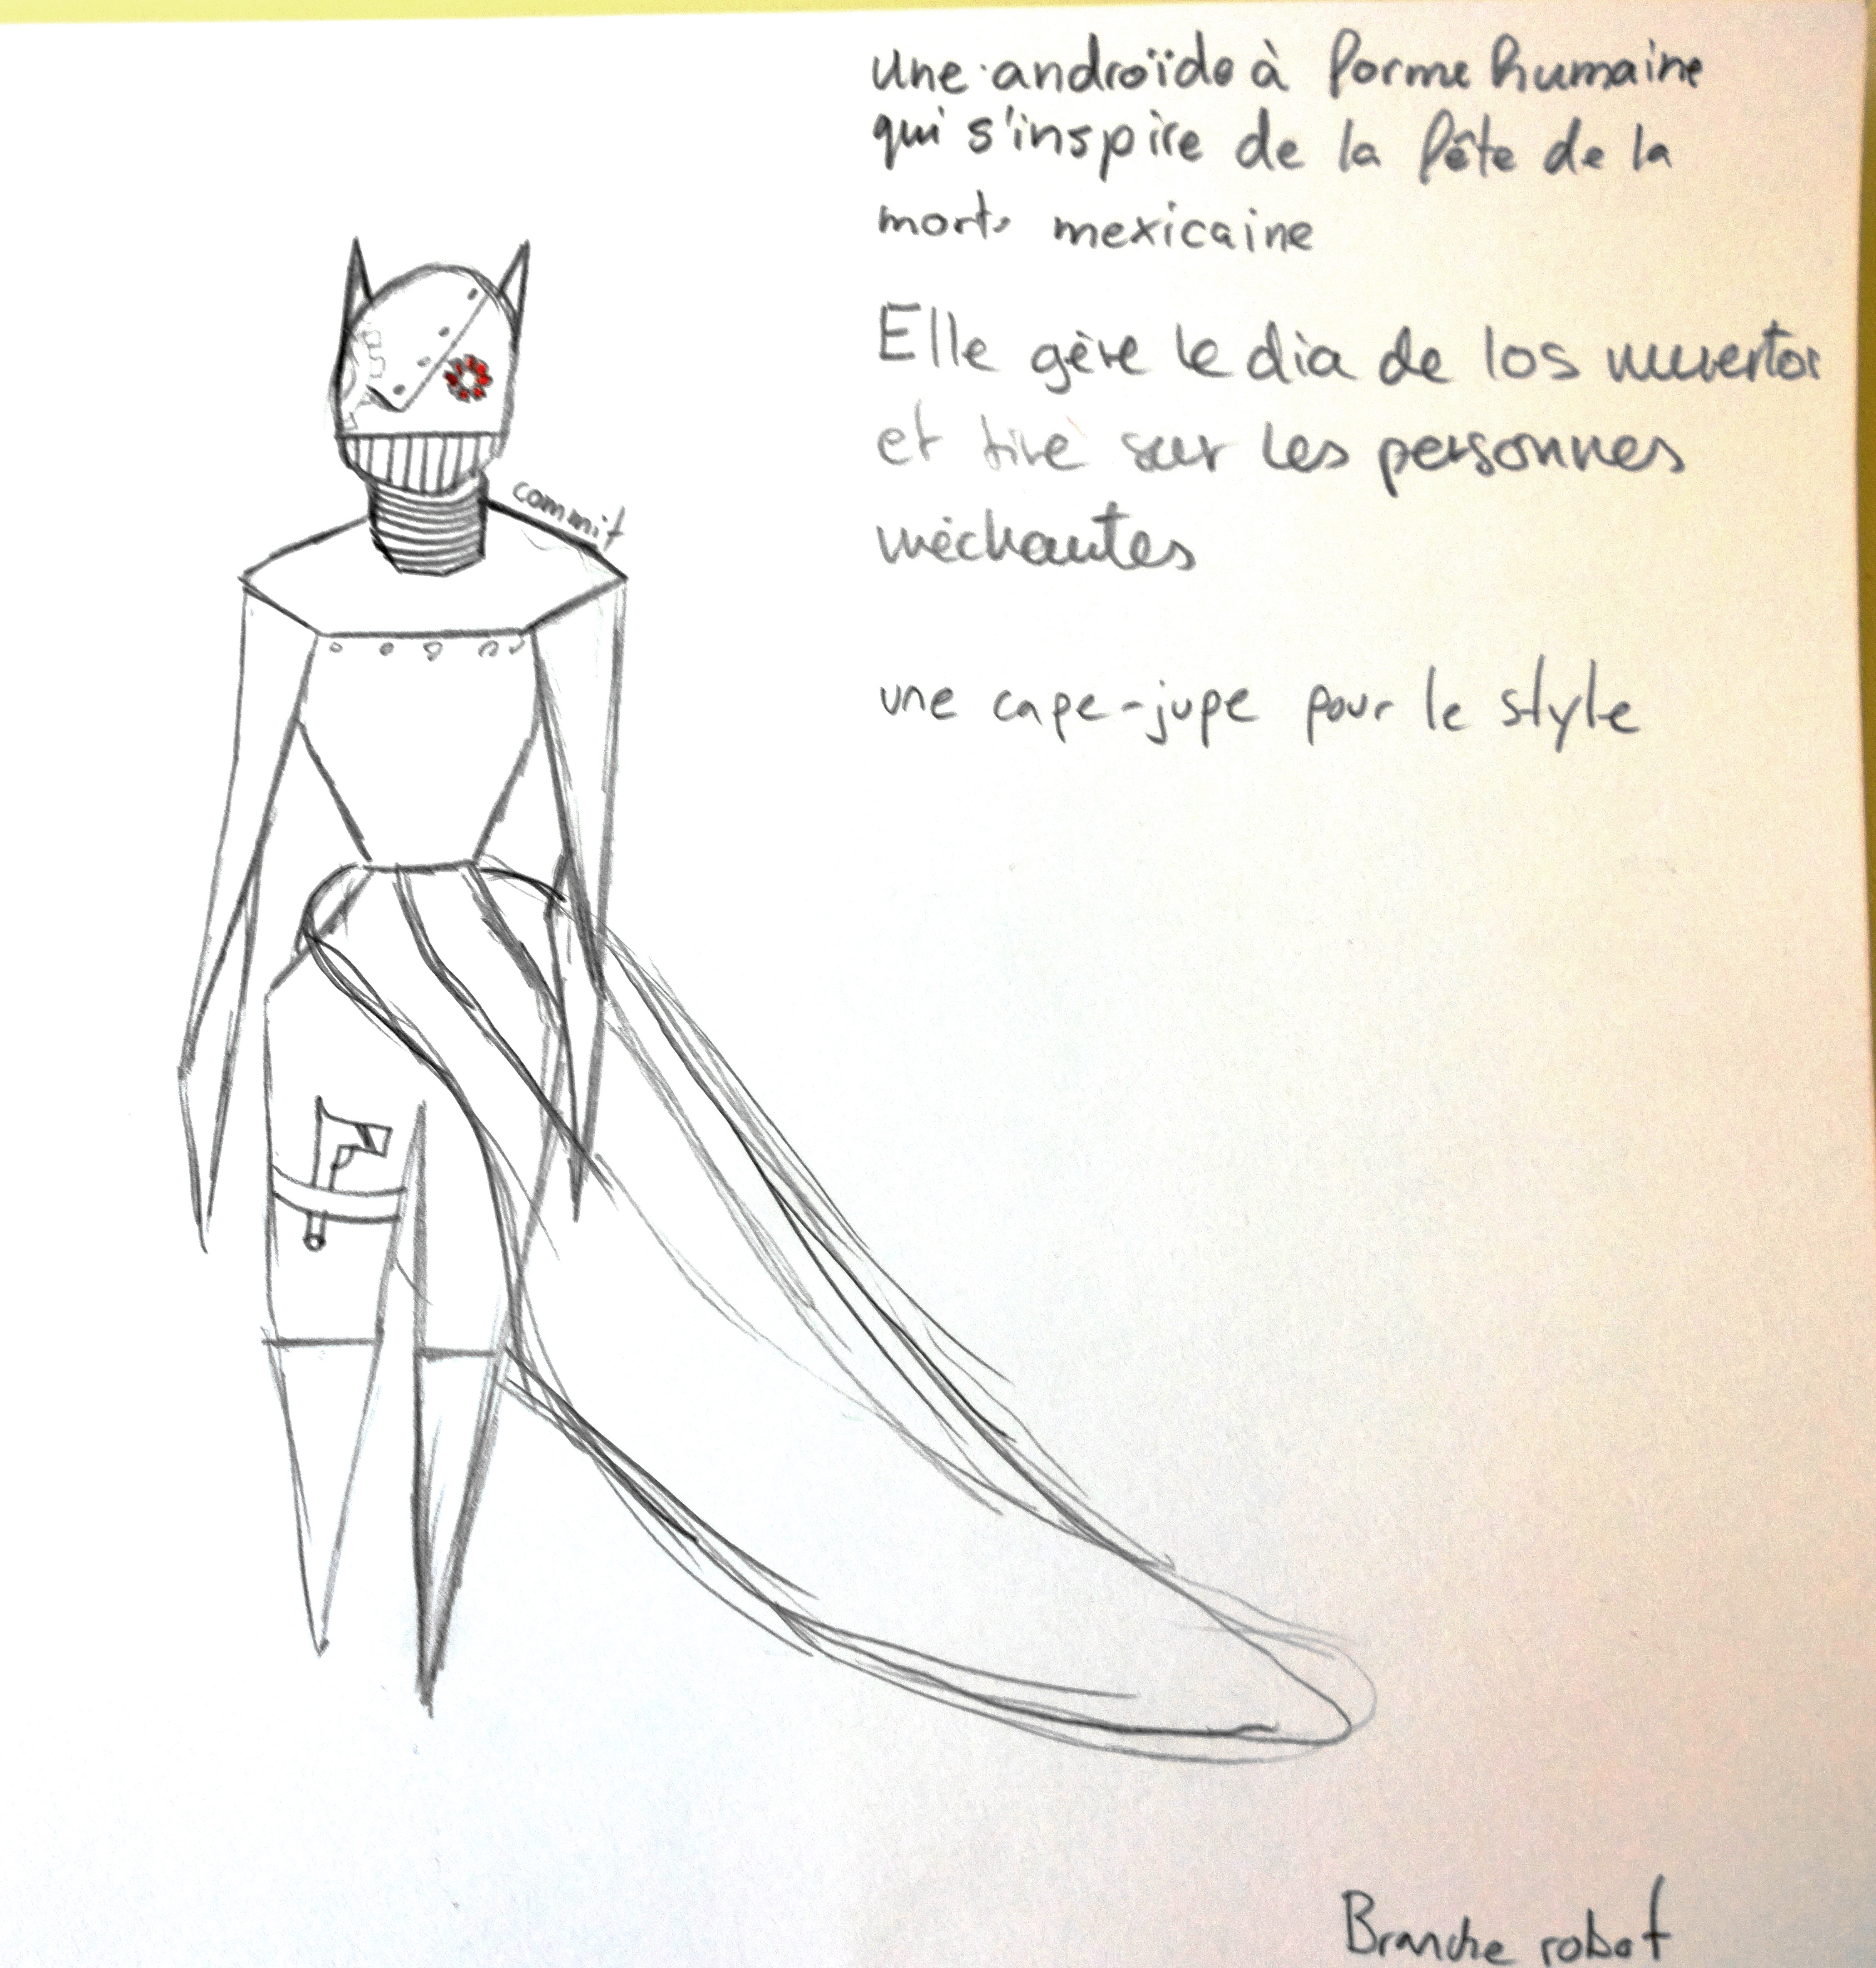 une androïde à forme humaine
qui s'inspire de la fête de la
mort mexicaine
Elle gère le dia de los muertos
et tire sur les personnes
méchantes
une cape-jupe pour le style
commit
Branche robot